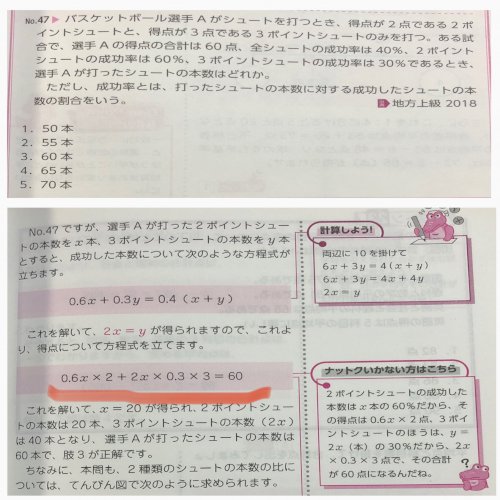 No.47▶ バスケットボール選手Aがシュートを打つとき、得点が2点である2ポ
イントシュートと、得点が3点である3ポイントシュートのみを打つ。ある試
合で、選手Aの得点の合計は60点、全シュートの成功率は40%、2ポイント
シュートの成功率は60%、3ポイントシュートの成功率は30%であるとき、
選手Aが打ったシュートの本数はどれか。
ただし、成功率とは、打ったシュートの本数に対する成功したシュートの本
数の割合をいう。
地方上級 2018
1. 50本
2. 55本
3. 60本
4. 65本
5. 70本
No.47ですが、選手Aが打った2ポイントシュー
トの本数をx本、3ポイントシュートの本数をy本
とすると、成功した本数について次のような方程式が
立ちます。
0.6x+0.3y=0.4(x+y)
これを解いて、2x=yが得られますので、これよ
り、得点について方程式を立てます。
0.6x×2+2x×0.3×3=60
これを解いて、x=20が得られ、2ポイントシュー
トの本数は20本、3ポイントシュートの本数(2x)
は40本となり、選手Aが打ったシュートの本数は
60本で、肢3が正解です。
ちなみに、本問も、2種類のシュートの本数の比に
ついては、てんびん図で次のように求められます。
計算しよう!
両辺に10を掛けて
6x+3y=4(x+y)
6x+3y=4x+4y
2x=y
ナットクいかない方はこちら
2ポイントシュートの成功した
本数はx本の60%だから、そ
の得点は0.6x×2点、3ポイ
ントシュートのほうは、y=
2x(本)の30%だから、2x
×0.3×3点で、その合計
が60点になるんだね。
?